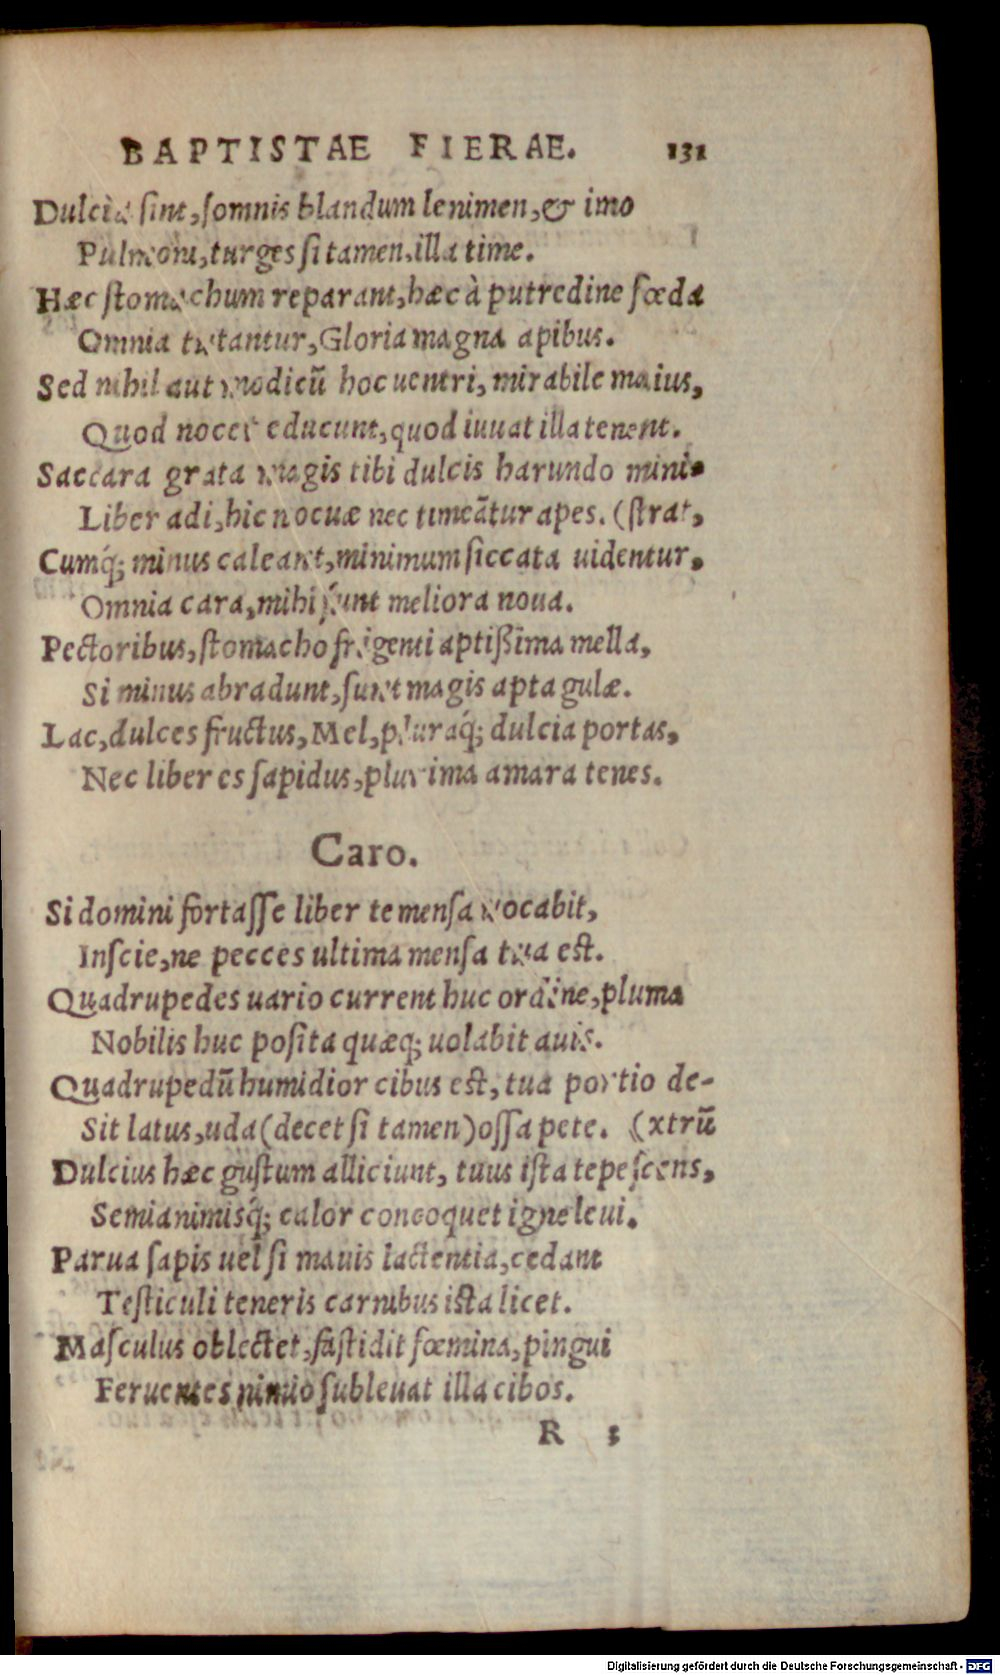 BAPTISTAE FIERAE. 131
Dulcia sint, somnis blandum lenimen, & imo
Pulmoni, turges si tamen, illa time.
Hæc stomachum reparant, hæc à putredine fœda
Omnia tutantur, Gloria magna apibus.
Sed nihil aut modicū hoc uentri, mirabile maius,
Quod nocet educunt, quod iuuat illa tenent.
Saccara grata magis tibi dulcis harundo mini-
Liber adi, hic nocuæ nec timeātur apes. (strat,
Cumq́; minus caleant, minimum siccata uidentur.
Omnia cara, mihi sunt meliora noua.
Pectoribus, stomacho frigenti aptißima mella,
Si minus abradunt, sunt magis apta gulæ.
Lac, dulces fructus, Mel, pluraq́; dulcia portas,
Nec liber es sapidus, plurima amara tenes.
Caro.
Si domini fortasse liber te mensa vocabit,
Inscie, ne pecces ultima mensa tua est.
Quadrupedes uario current huc ordine, pluma
Nobilis huc posita quæq; uolabit auis.
Quadrupedū humidior cibus est, tua portio de-
Sit latus, uda (decet si tamen) ossa pete. (xtrū
Dulcius hæc gustum alliciunt, tuus ista tepescens,
Semianimisq́; calor concoquet igne leui.
Parua sapis uel si mauis lactentia, cedant
Testiculi teneris carnibus ista licet.
Masculus oblectet, fastidit fœmina, pingui
Feruentes nimio subleuat illa cibos.
R 3
Digitalisierung gefördert durch die Deutsche Forschungsgemeinschaft - DFG